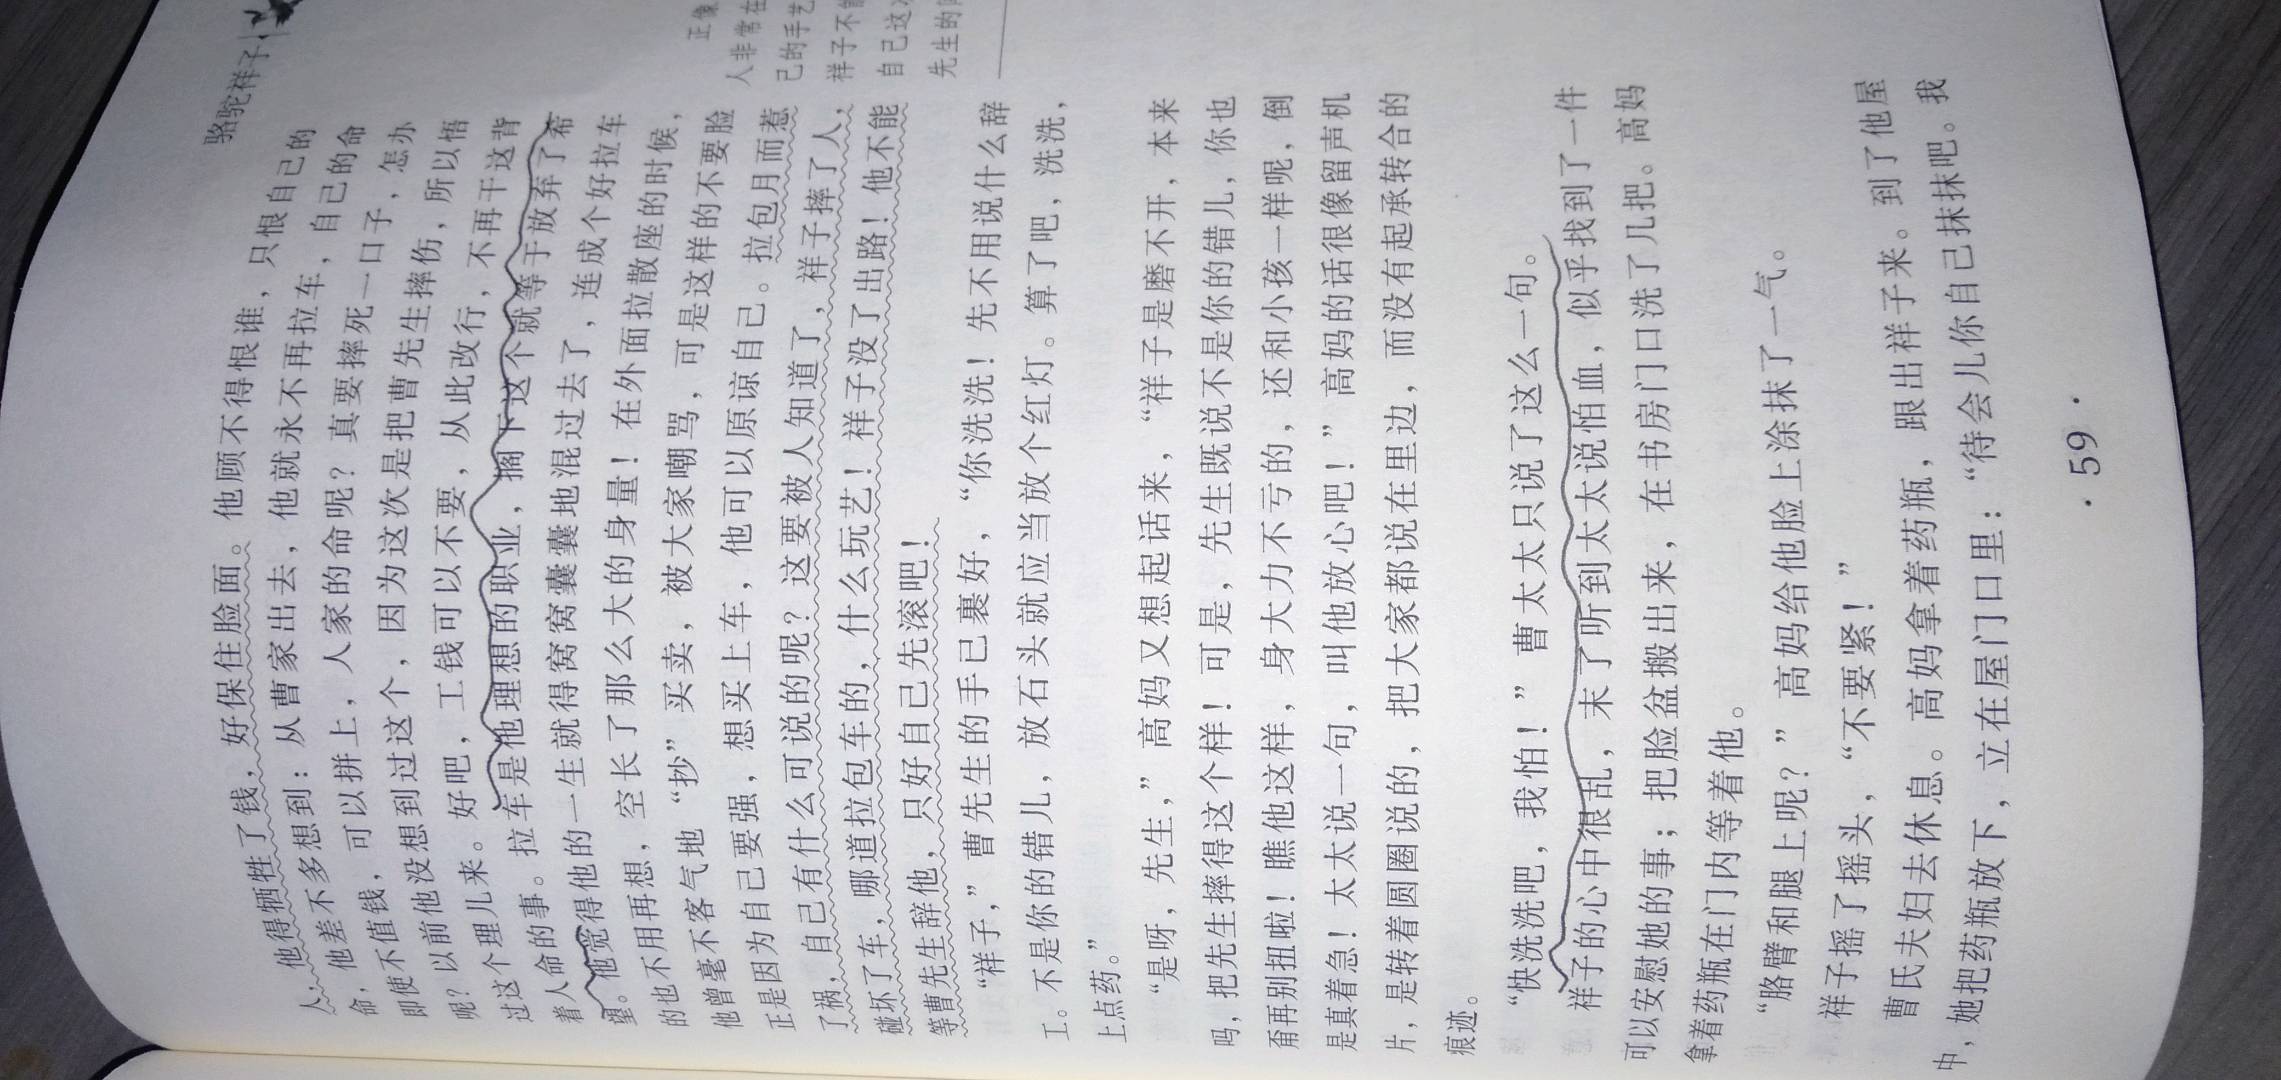 骆驼祥子
人，他得牺牲了钱，好保住脸面。他顾不得恨谁，只恨自己的
命，他差不多想到：从曹家出去，他就永不再拉车，自己的命
即使不值钱，可以拼上，人家的命呢？真要摔死一口子，怎办
呢？以前他没想到过这个，因为这次是把曹先生摔伤，所以悟
过这个理儿来。好吧，工钱可以不要，从此改行，不再干这背
着人命的事。拉车是他理想的职业，搁下这个就等于放弃了希
望。他觉得他的一生就得窝窝囊囊地混过去了，连成个好拉车
的也不用再想，空长了那么大的身量！在外面拉散座的时候，
他曾毫不客气地“抄”买卖，被大家嘲骂，可是这样的不要脸
正是因为自己要强，想买上车，他可以原谅自己。拉包月而惹
了祸，自己有什么可说的呢？这要被人知道了，祥子摔了人，
碰坏了车，哪道拉包车的，什么玩艺！祥子没了出路！他不能
等曹先生辞他，只好自己先滚吧！
“祥子，”曹先生的手已裹好，“你洗洗！先不用说什么辞
工。不是你的错儿，放石头就应当放个红灯。算了吧，洗洗，
上点药。”
“是呀，先生，”高妈又想起话来，“祥子是磨不开，本来
吗，把先生摔得这个样！可是，先生既说不是你的错儿，你也
甭再别扭啦！瞧他这样，身大力不亏的，还和小孩一样呢，倒
是真着急！太太说一句，叫他放心吧！”高妈的话很像留声机
片，是转着圆圈说的，把大家都说在里边，而没有起承转合的
痕迹。
“快洗洗吧，我怕！”曹太太只说了这么一句。
祥子的心中很乱，末了听到太太说怕血，似乎找到了一件
可以安慰她的事；把脸盆搬出来，在书房门口洗了几把。高妈
拿着药瓶在门内等着他。
“胳臂和腿上呢？”高妈给他脸上涂抹了一气。
祥子摇了摇头，“不要紧！”
曹氏夫妇去休息。高妈拿着药瓶，跟出祥子来。到了他屋
中，她把药瓶放下，立在屋门口里：“待会儿你自己抹抹吧。我
·59·
正像
人非常在
己的手艺
样子不能
自己这次
先生的